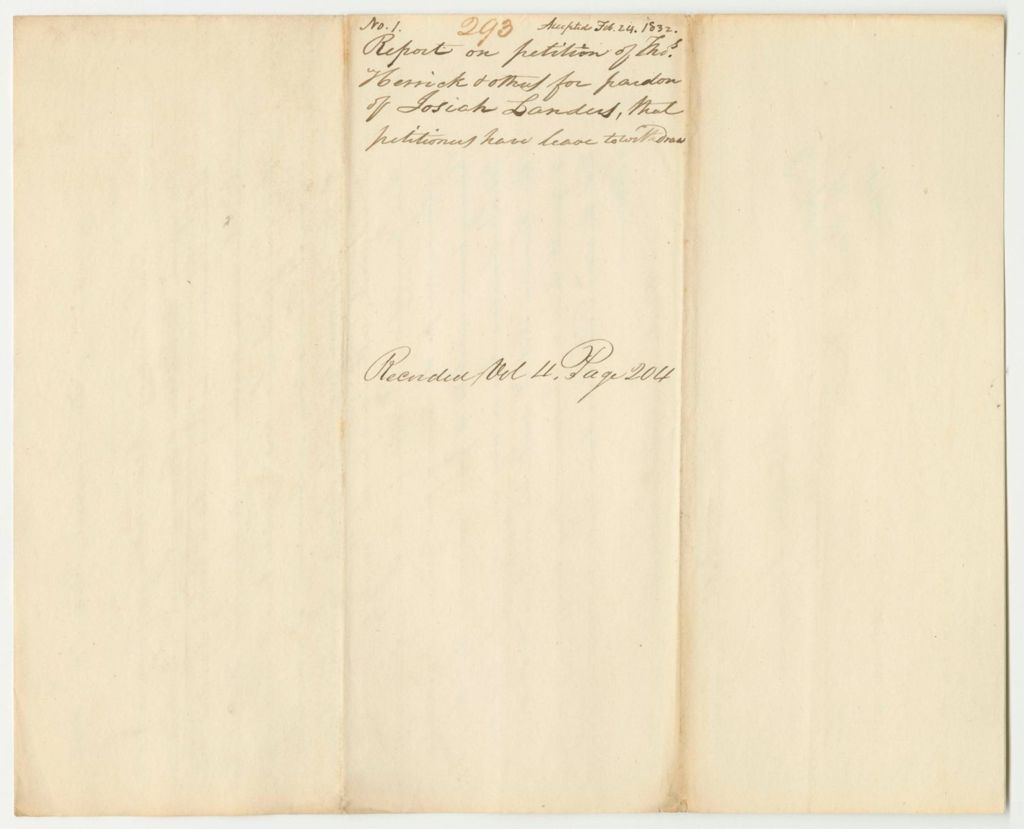 No. 1. 293 Accepted Feb. 24. 1832.
Report on petition of Thos.
Herrick & others for pardon
of Josiah Landers, that
petitioners have leave to withdraw
Recorded Vol 4. Page 204